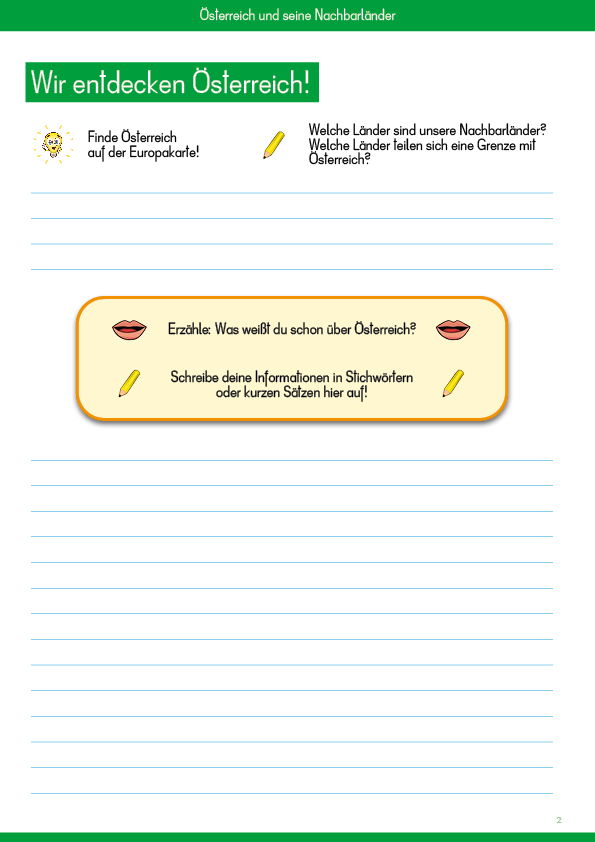 Österreich und seine Nachbarländer
Wir entdecken Österreich!
Finde Österreich
auf der Europakarte!
Welche Länder sind unsere Nachbarländer?
Welche Länder teilen sich eine Grenze mit
Österreich?
Erzähle: Was weißt du schon über Österreich?
Schreibe deine Informationen in Stichwörtern
oder kurzen Sätzen hier auf!
2